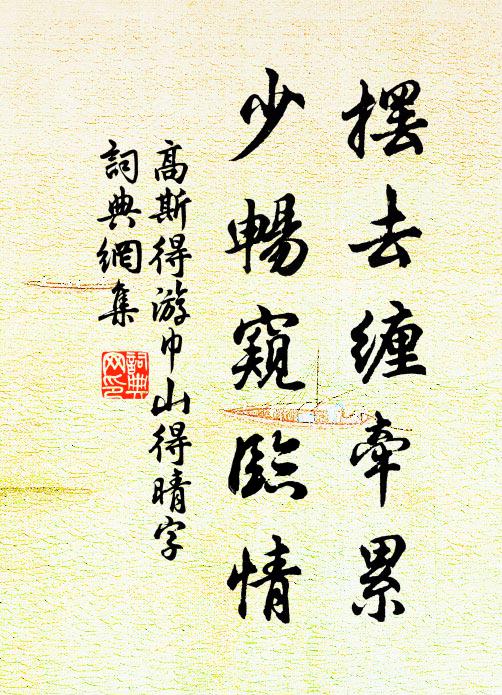 擺去纏牽累
少暢窺臨情
高斯得游巾山得晴字
詞典網集
詞典
网印